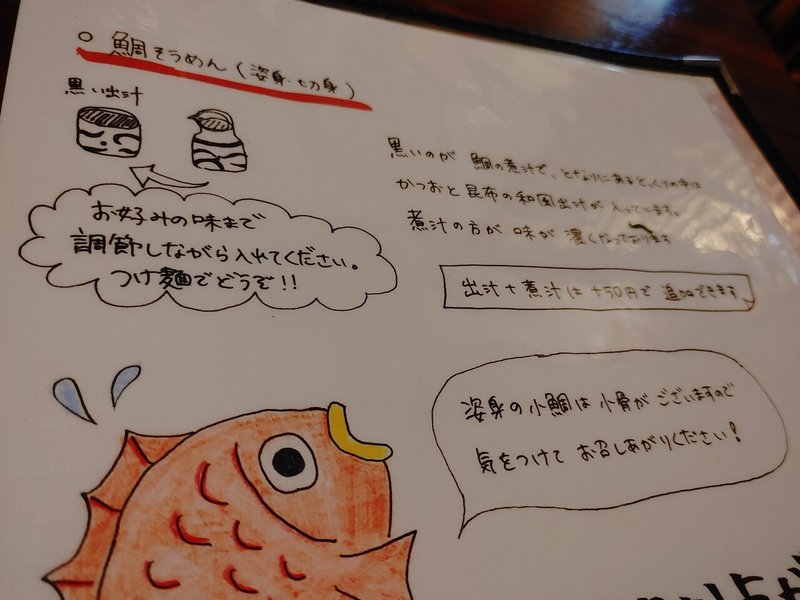 ○ 鯛そうめん(姿身・切身)
黒い出汁
お好みの味まで
調節しながら入れてください。
つけ麺でどうぞ!!
黒いのが 鯛の煮汁で、となりにあるとっくりの中は
かつおと昆布の和風出汁が入っています。
煮汁の方が 味が 濃くなっております
出汁+煮汁は+50円で 追加できます
姿身の小鯛は 小骨がございますので
気をつけて お召しあがりください!